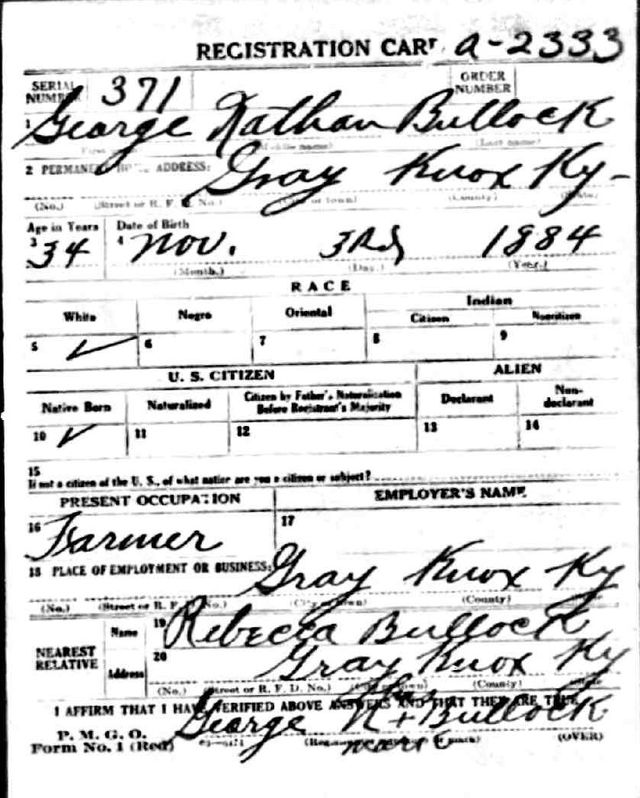 REGISTRATION CARD A-2333
SERIAL NUMBER 371 ORDER NUMBER
1 George Nathan Bullock
(Middle name) (Last name)
2 PERMANENT HOME ADDRESS: Gray Knox Ky-
(No.) (Street or R. F. D. No.) (City or town) (County) (State)
Age in Years Date of Birth
3 34 4 Nov. 3Rd 1884
(Month.) (Day.) (Year.)
RACE
White Negro Oriental Indian
Citizen Noncitizen
5 ✓ 6 7 8 9
U. S. CITIZEN ALIEN
Native Born Naturalized Citizen by Father's Naturalization Before Registrant's Majority Declarant Non-declarant
10 ✓ 11 12 13 14
15
If not a citizen of the U. S., of what nation are you a citizen or subject?
PRESENT OCCUPATION EMPLOYER'S NAME
16 Farmer 17
18 PLACE OF EMPLOYMENT OR BUSINESS: Gray Knox Ky
(No.) (Street or R. F. D. No.) (City or town) (County)
NEAREST RELATIVE Name 19 Rebecca Bullock
Address 20 Gray Knox Ky
(No.) (Street or R. F. D. No.) (City or town) (County) (State)
I AFFIRM THAT I HAVE VERIFIED ABOVE ANSWERS AND THAT THEY ARE TRUE
P. M. G. O.
Form No. 1 (Red) George N + Bullock
his
mark
(OVER)